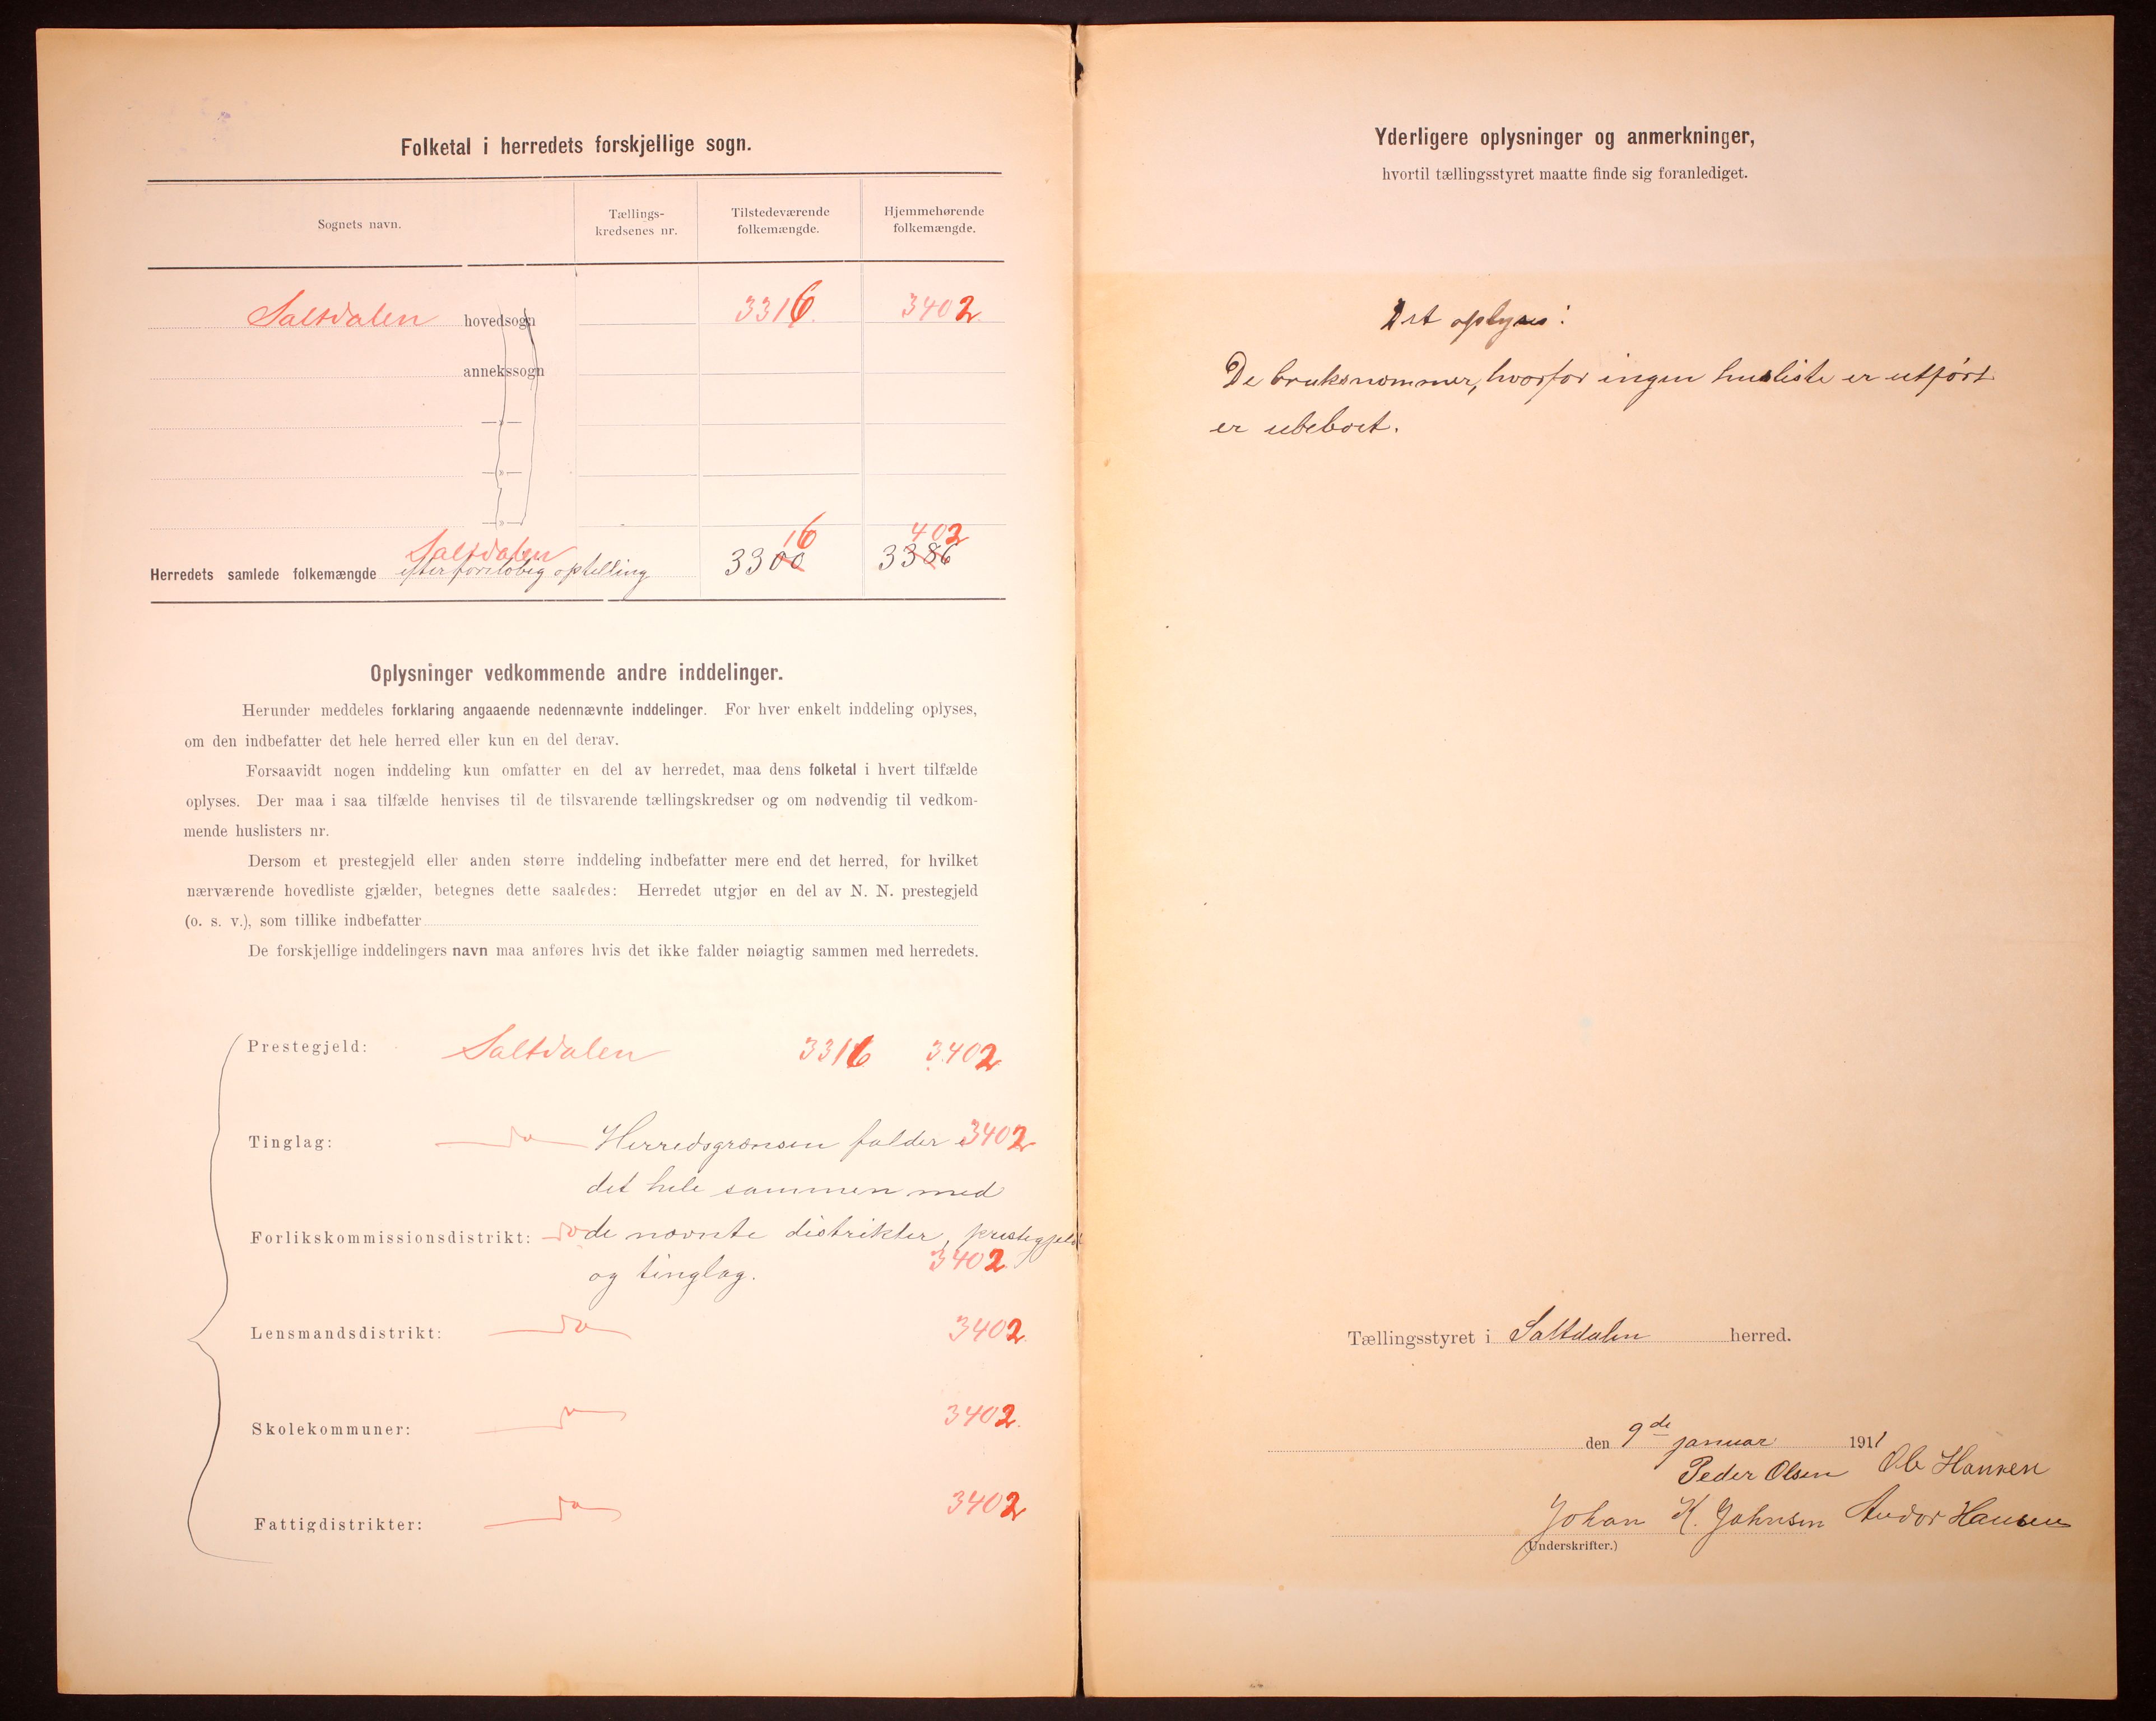 Folketal i herredets forskjellige sogn.
Sognets navn.
Tællings-
kredsenes nr.
Tilstedeværende
folkemængde.
Hjemmehørende
folkemængde.
Saltdalen hovedsogn 3316. 3402.
annekssogn
—»—
—»—
—»—
16 402
Saltdalen
Herredets samlede folkemængde efter foreløbig optelling 3300 3386
Oplysninger vedkommende andre inddelinger.
Herunder meddeles forklaring angaaende nedennævnte inddelinger. For hver enkelt inddeling oplyses,
om den indbefatter det hele herred eller kun en del derav.
Forsaavidt nogen inddeling kun omfatter en del av herredet, maa dens folketal i hvert tilfælde
oplyses. Der maa i saa tilfælde henvises til de tilsvarende tællingskredser og om nødvendig til vedkom-
mende huslisters nr.
Dersom et prestegjeld eller anden større inddeling indbefatter mere end det herred, for hvilket
nærværende hovedliste gjælder, betegnes dette saaledes: Herredet utgjør en del av N. N. prestegjeld
(o. s. v.), som tillike indbefatter
De forskjellige inddelingers navn maa anføres hvis det ikke falder nøiagtig sammen med herredets.
Prestegjeld: Saltdalen 3316 3402
Tinglag: do Herredsgrænsen falder i 3402
det hele sammen med
Forlikskommissionsdistrikt: do de nævnte distrikter, prestegjeld
og tinglag. 3402
Lensmandsdistrikt: do 3402.
Skolekommuner: do 3402.
Fattigdistrikter: do 3402
Yderligere oplysninger og anmerkninger,
hvortil tællingsstyret maatte finde sig foranlediget.
Det oplyses:
De bruksnummer, hvorfor ingen husliste er utført
er ubeboet.
Tællingsstyret i Saltdalen herred.
den 9de januar 1911
Peder Olsen Ole Hansen
Johan K. Johnsen Andor Hansen
(Underskrifter.)